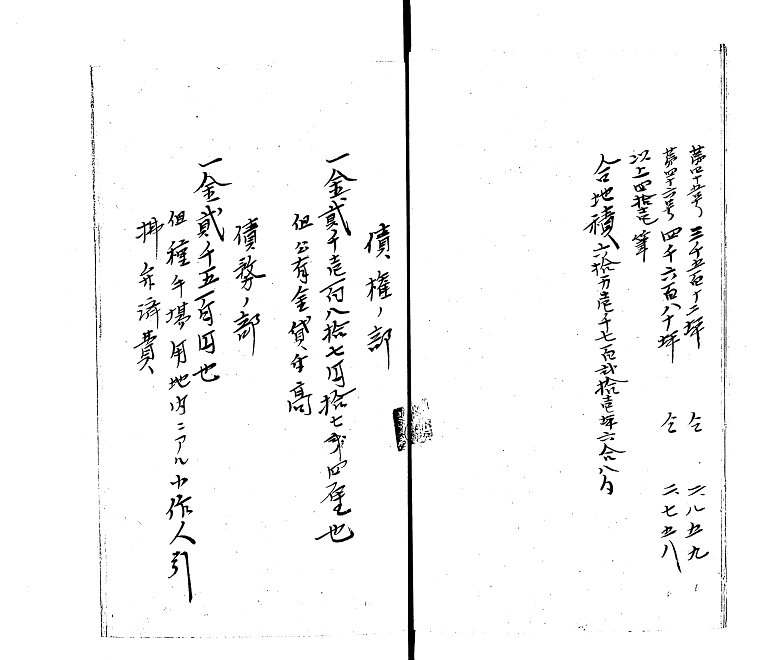 第四十五号 三千五百十二坪 仝 二、八五九
第四十六号 四千六百八十坪 仝 二、七五八
以上四拾壱筆
合地積六拾万壱千七百弐拾壱坪六合八勺
債権ノ部
一金貳千壱百八拾七円拾七銭四厘也
但公有金貸付高
債務ノ部
一金貳千五百円也
但種牛場用地内ニアル小作人引
拂弁済費